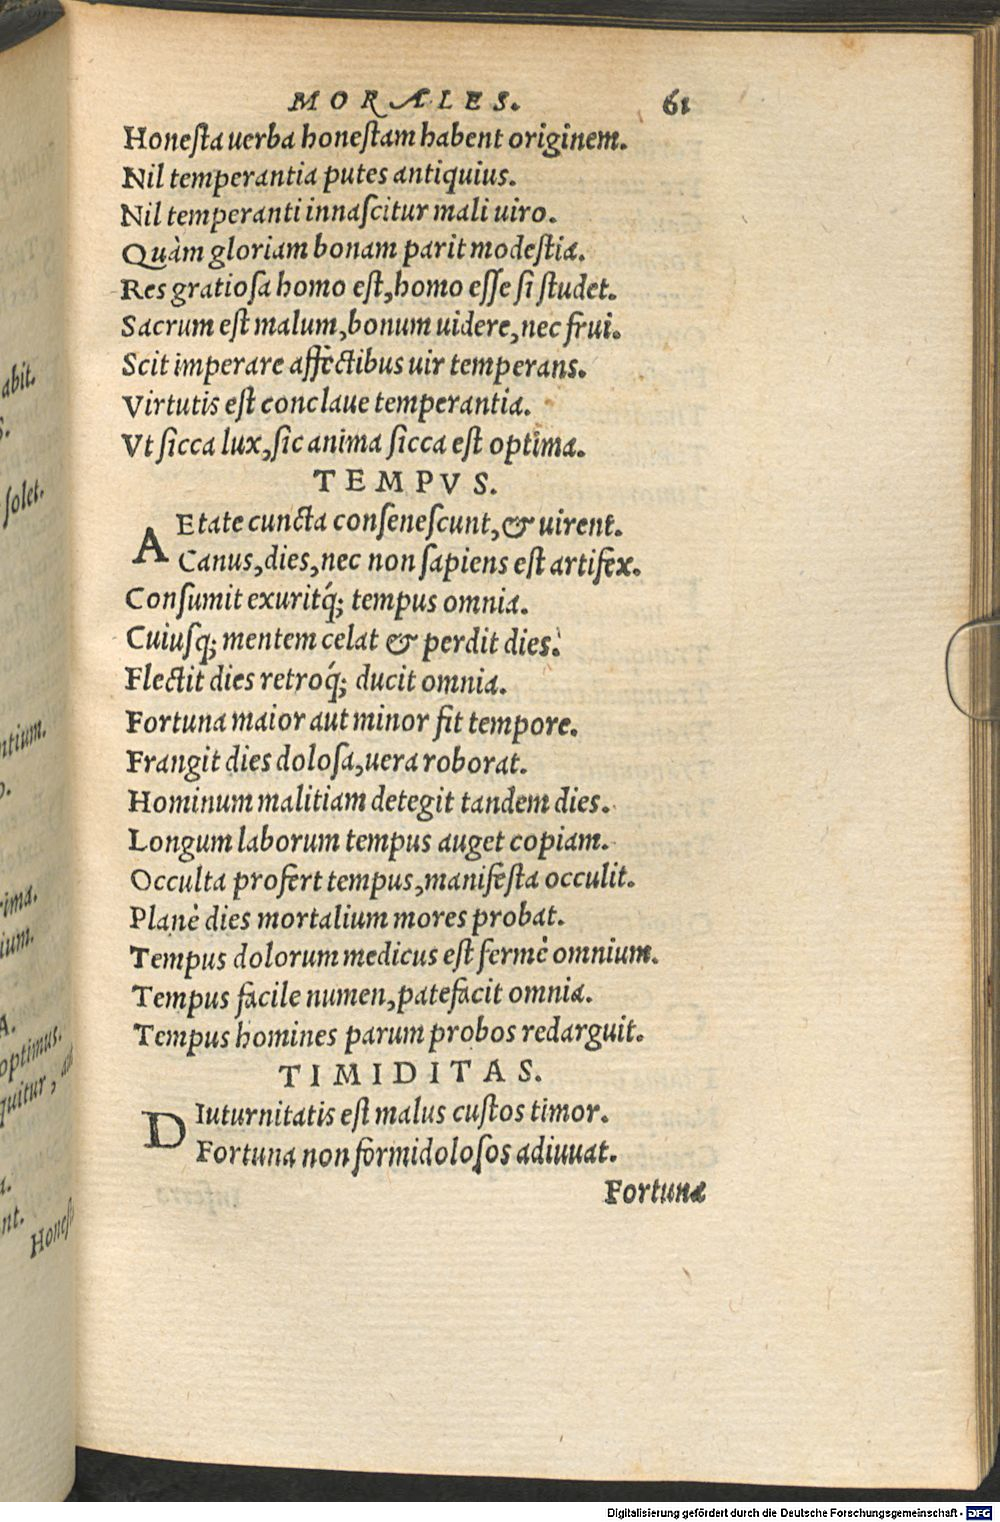 MORALES. 61
Honeſta uerba honeſtam habent originem.
Nil temperantia putes antiquius.
Nil temperanti innaſcitur mali uiro.
Quàm gloriam bonam parit modeſtia.
Res gratioſa homo eſt, homo eſſe ſi ſtudet.
Sacrum eſt malum, bonum uidere, nec frui.
Scit imperare affectibus uir temperans.
Virtutis eſt conclaue temperantia.
Vt ſicca lux, ſic anima ſicca eſt optima.
TEMPVS.
AEtate cuncta conſeneſcunt, & uirent.
Canus, dies, nec non ſapiens eſt artifex.
Conſumit exuritq́; tempus omnia.
Cuiuſq; mentem celat & perdit dies.
Flectit dies retroq́; ducit omnia.
Fortuna maior aut minor fit tempore.
Frangit dies doloſa, uera roborat.
Hominum malitiam detegit tandem dies.
Longum laborum tempus auget copiam.
Occulta profert tempus, manifeſta occulit.
Planè dies mortalium mores probat.
Tempus dolorum medicus eſt fermè omnium.
Tempus facile numen, patefacit omnia.
Tempus homines parum probos redarguit.
TIMIDITAS.
DIuturnitatis eſt malus cuſtos timor.
Fortuna non formidoloſos adiuuat.
Fortuna
abit.
S.
ſolet.
ntium.
o.
rima.
ium.
A.
optimus.
quitur,
a.
nt.
Honeſ
Digitalisierung gefördert durch die Deutsche Forschungsgemeinschaft - DFG